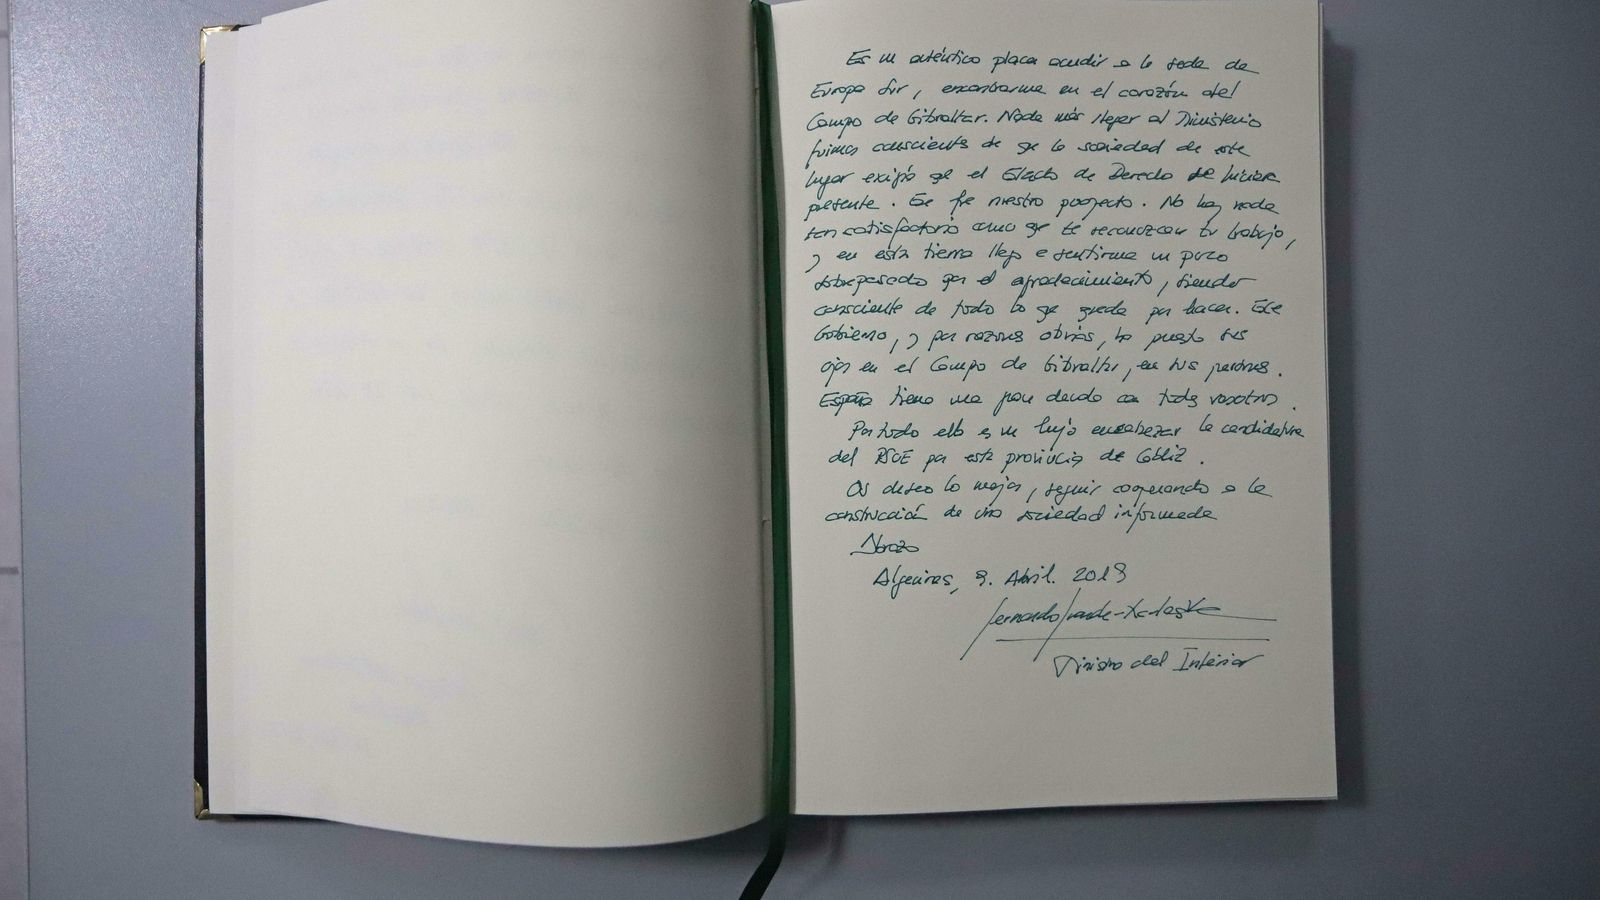 Es un auténtico placer acudir a la sede de
Europa Sur, encontrarme en el corazón del
Campo de Gibraltar. Nada más llegar al Ministerio
fuimos conscientes de que la sociedad de este
lugar exigía que el Estado de Derecho se hiciera
presente. Ese fue nuestro proyecto. No hay nada
tan satisfactorio como que te reconozcan tu trabajo,
y en esta tierra llego a sentirme un poco
sobrepasado por el agradecimiento, siendo
consciente de todo lo que queda por hacer. Este
Gobierno, y por razones obvias, ha puesto sus
ojos en el Campo de Gibraltar, en sus personas.
España tiene una gran deuda con todos vosotros.
Por todo ello es un lujo encabezar la candidatura
del PSOE por esta provincia de Cádiz.
Os deseo lo mejor, seguir cooperando a la
construcción de una sociedad informada
Abrazo
Algeciras, 9. Abril. 2019
Fernando Grande-Marlaska
Ministro del Interior